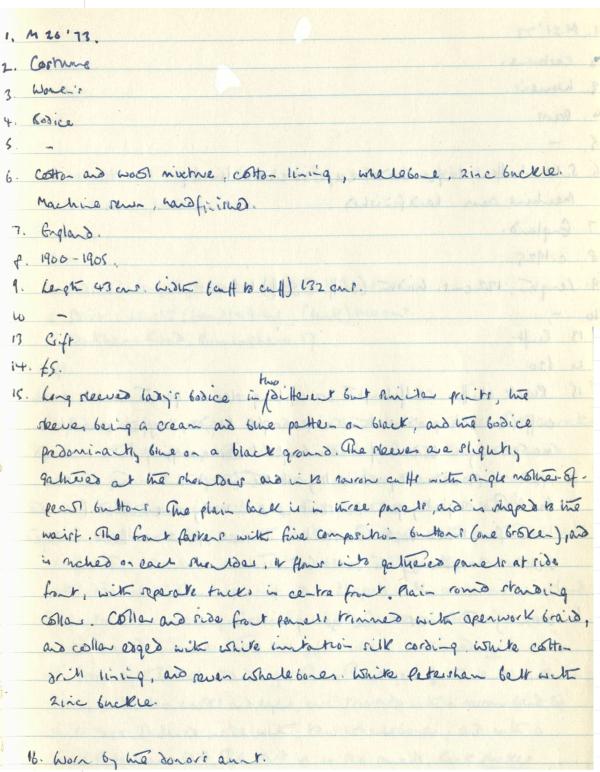 1. M 26 '73.
2. Costume
3 Women's
4. Bodice
5. -
6. Cotton and wool mixture, cotton lining, whalebone, zinc buckle.
Machine sewn, handfinished.
7. England.
8. 1900-1905.
9. Length 43 cms. Width (cuff to cuff) 132 cms.
10 -
13 Gift
14. £5.
15. Long sleeved lady's bodice in two different but similar prints, the
sleeves being a cream and blue pattern on black, and the bodice
predominantly blue on a black ground. The sleeves are slightly
gathered at the shoulders and into narrow cuffs with single mother-of-
pearl buttons. The plain back is in three panels, and is shaped to the
waist. The front fastens with five composition buttons (one broken), and
is ruched on each shoulder. It flows into gathered panels at side
front, with seperate tucks in centre front. Plain round standing
collar. Collar and side front panels trimmed with openwork braid,
and collar edged with white imitation silk cording. White cotton
drill lining, and seven whalebones. White Petersham belt with
zinc buckle.
16. Worn by the donor's aunt.